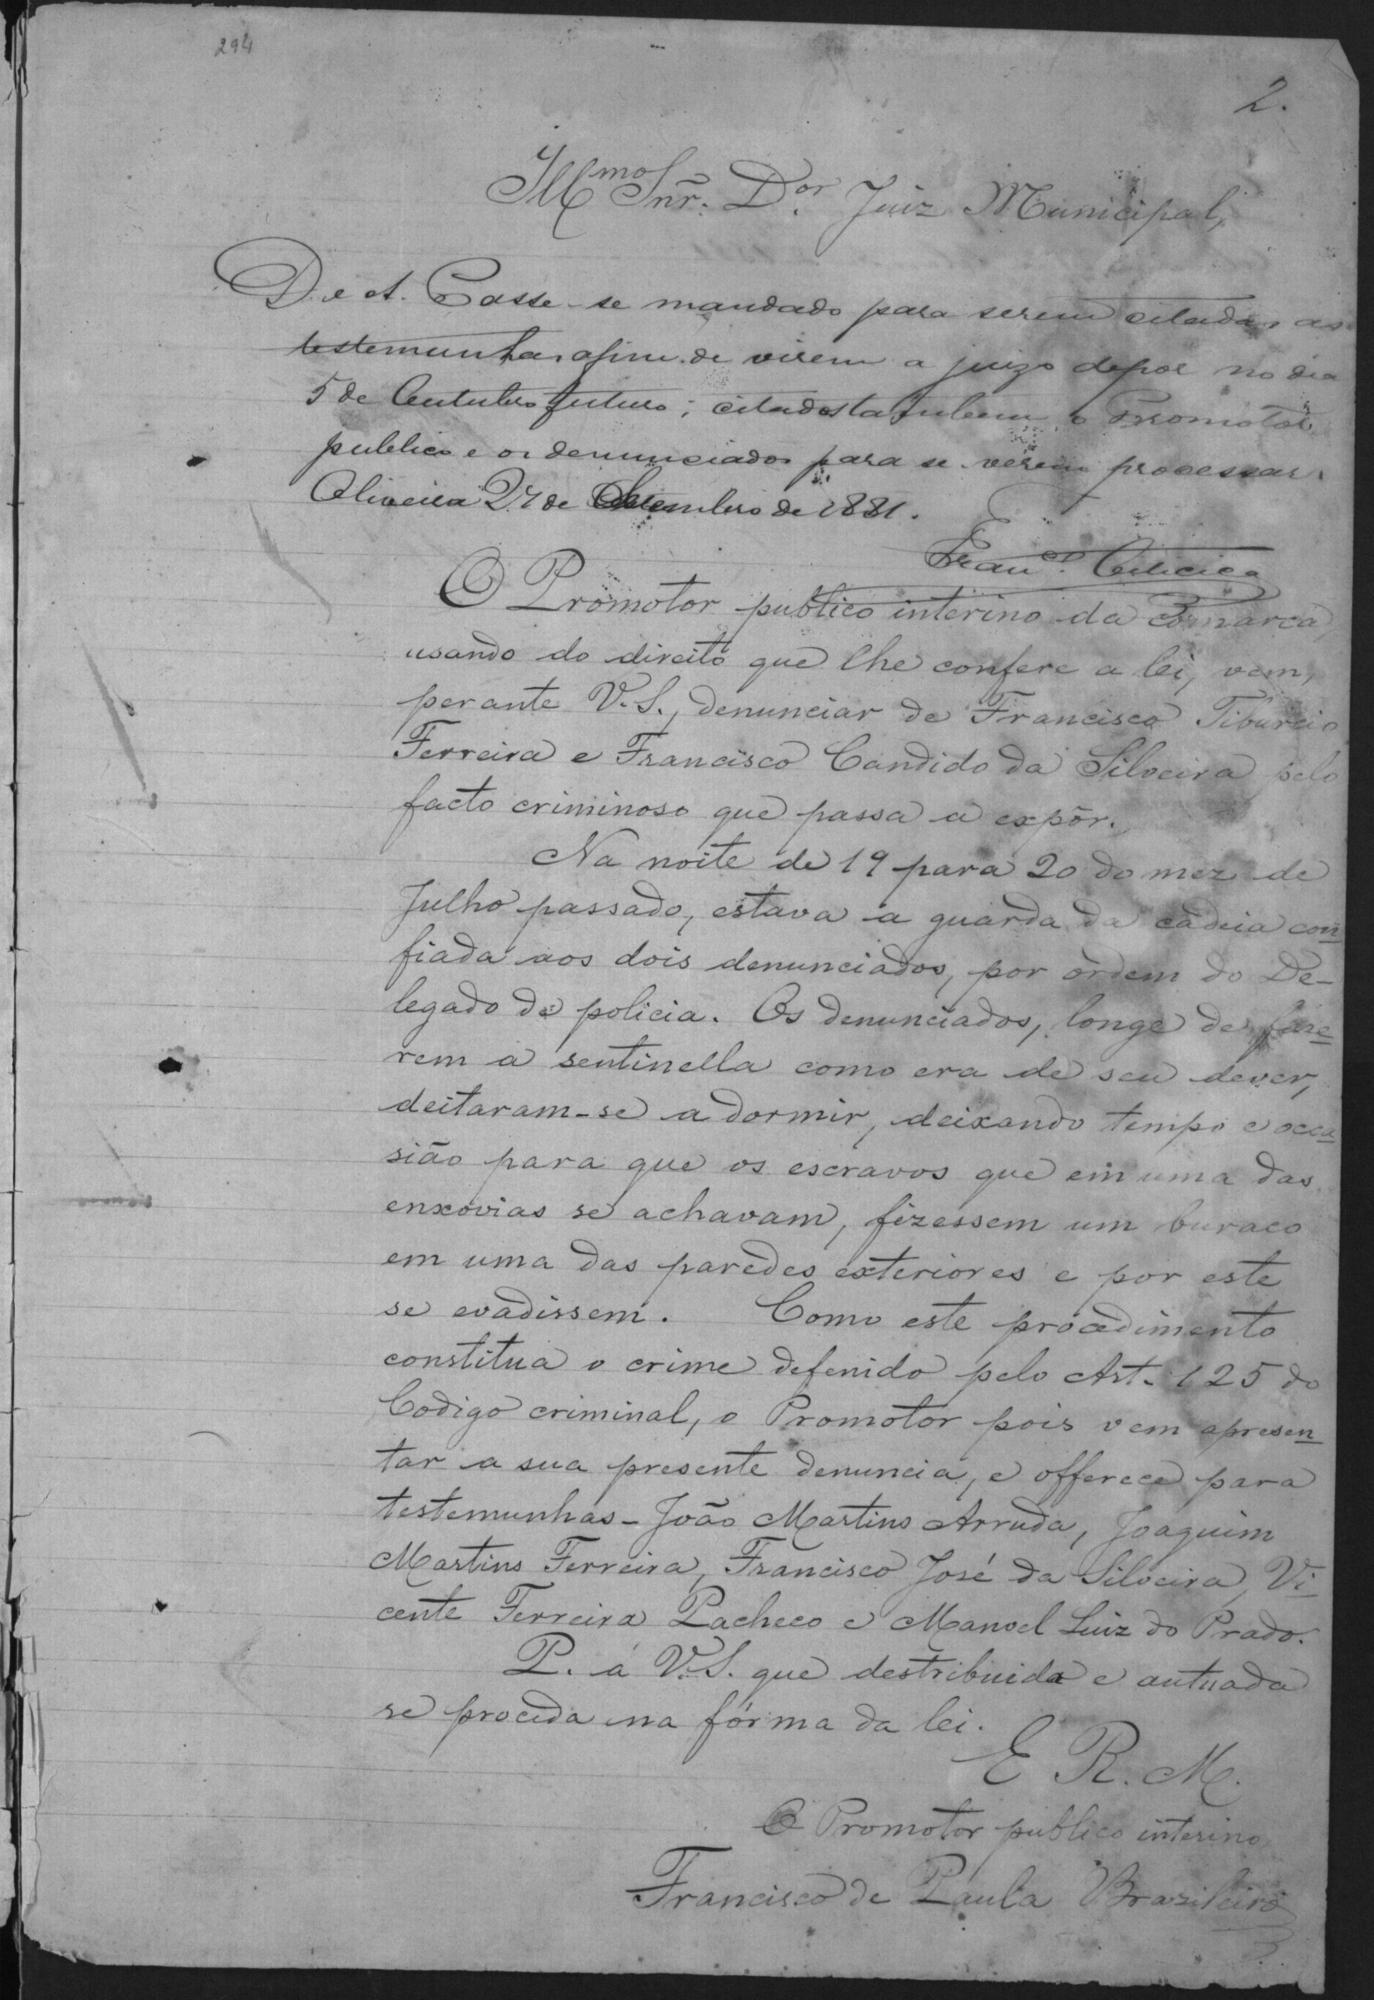 294
2.
Illmo Snr. Dor. Juiz Municipal,
D. e A. Passe-se mandado para serem citadas as
testemunhas afim de virem a juizo depor no dia
5 de Outubro futuro; citados tambem o Promotor
publico e os denunciados para se verem processar.
Oliveira 27 de Setembro de 1881.
Franco.
O Promotor publico interino da comarca,
usando do direito que lhe confere a lei, vem,
perante V.S., denunciar de Francisco Tiburcio
Ferreira e Francisco Candido da Silveira pelo
facto criminoso que passa a expôr.
Na noite de 19 para 20 do mez de
Julho passado, estava a guarda da cadeia con
fiada aos dois denunciados, por ordem do De-
legado de policia. Os denunciados, longe de faze
rem a sentinella como era de seu dever,
deitaram-se a dormir, deixando tempo e occa
sião para que os escravos que em uma das
enxovias se achavam, fizessem um buraco
em uma das paredes exteriores e por este
se evadissem. Como este procedimento
constitua o crime defenido pelo Art. 125 do
Codigo criminal, o Promotor pois vem apresen
tar a sua presente denuncia, e offerece para
testemunhas - João Martins Arruda, Joaquim
Martins Ferreira, Francisco José da Silveira, Vi
cente Ferreira Pacheco e Manoel Luiz do Prado.
P. á V.S. que destribuida e autuada
se proceda na fórma da lei.
E R. M.
O Promotor publico interino
Francisco de Paula Brazileiro